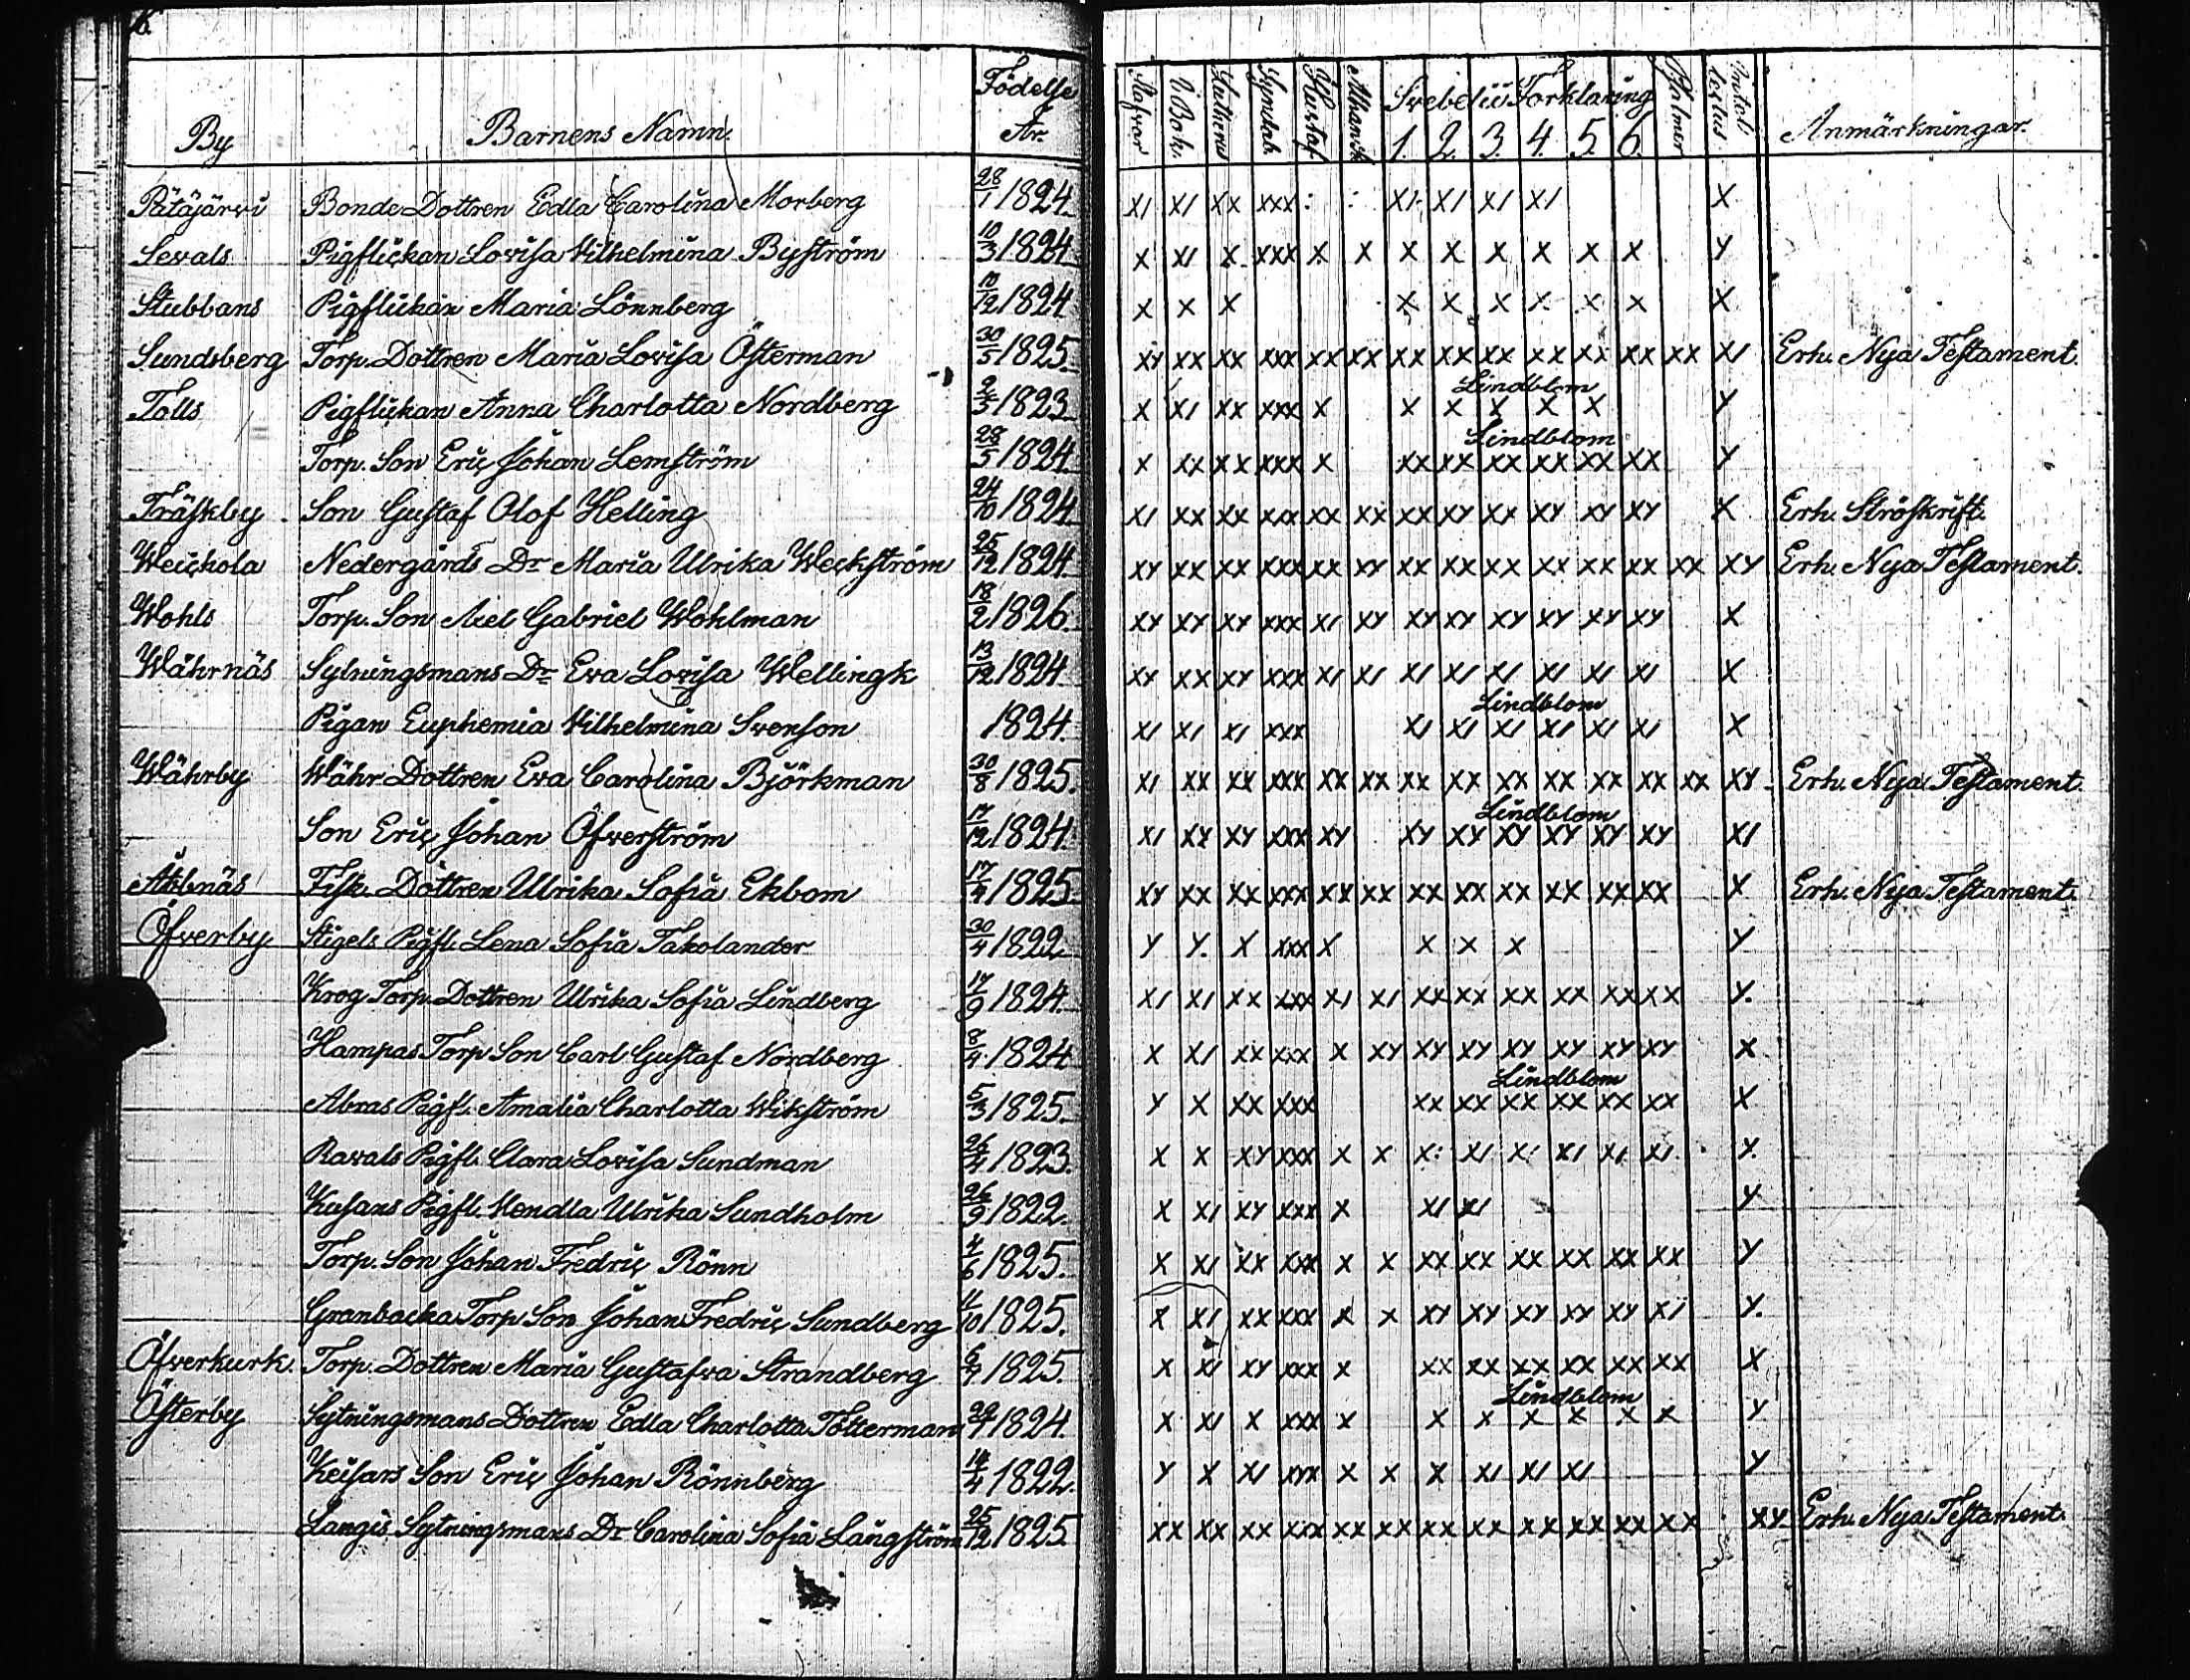 By Barnens Namn. Födelse År. Stafvar I Bok. Luthers Symbol. Hustaf Athanas. Svebelii Förklaring 1. 2. 3. 4. 5. 6. Psalmer Intellectus Anmärkningar.
Pätäjärvi Bonde Dottren Edla Carolina Morberg 28/1 1824. XI XI XX XXX : : XI XI XI XI X
Sevals Pigflickan Lovisa Vilhelmina Byström 10/3 1824 X XI X XXX X X X X X X X X Y
Stubbans Pigflickan Maria Lönnberg 1824 X X X X X X X X X X
Sundsberg Torp. Dottren Maria Lovisa Österman 30/5 1825. XY XX XX XXX XX XX XX XX XX XX XX XX XX XI Erh. Nya Testament.
Lindblom
Tolls Pigflickan Anna Charlotta Nordberg 2/3 1823 X XI XX XXX X X X X X X Y
Lindblom
Torp. Son Eric Johan Lemström 28/5 1824 X XX XX XXX X XX XX XX XX XX XX Y
Träskby Son Gustaf Olof Helling 24/10 1824 XI XX XX XXX XX XX XX XY XX XY XY XY X Erh. Ströskrift.
Weickola Nedergårds Dr Maria Ulrika Weckström 25/12 1824 XY XX XX XXX XX XY XX XX XX XX XX XX XX XY Erh. Nya Testament.
Wohls Torp. Son Axel Gabriel Wohlman 18/2 1826 XY XY XY XXX XI XY XY XY XY XY XY XY X
Währnäs Sytningsmans Dr Eva Lovisa Wellingk 13/12 1824 XY XX XY XXX XI XI XI XI XI XI XI XI X
Lindblom
Pigan Euphemia Vilhelmina Svenson 1824. XI XI XI XXX XI XI XI XI XI XI X
Währby Währ Dottren Eva Carolina Björkman 30/8 1825. XI XX XX XXX XX XX XX XX XX XX XX XX XX XY. Erh. Nya Testament.
Lindblom
Son Eric Johan Öfverström 17/12 1824. XI XX XY XXX XY XY XY XY XY XY XY XI
Fisk. Dottren Ulrika Sofia Ekbom 1825 XY XX XX XXX XX XX XX XX XX XX XX XX X Erh. Nya Testament.
Öfverby Stigels Pigfl. Lena Sofia Takolander 30/4 1822 Y Y. X XXX X X X X Y
Krog Torp. Dottren Ulrika Sofia Lindberg 17/9 1824. XI XI XX XXX XI XI XX XX XX XX XX XX Y.
Hampas Torp Son Carl Gustaf Nordberg 8/4 1824 X XI XX XXX X XY XY XY XY XY XY XY X
Lindblom
Abras Pigfl. Amalia Charlotta Wikström 5/3 1825. Y X XX XXX XX XX XX XX XX XX X
Ravals Pigfl. Clara Lovisa Sundman 26/4 1823. X X XY XXX X X X: XI X: XI XI XI Y.
Pigfl. Hendla Ulrika Sundholm 26/9 1822. X XI XY XXX X XI XI Y
Torp. Son Johan Fredric Rönn 4/6 1825. X XI XX XXX X X XX XX XX XX XX XX Y
Granbacka Torp Son Johan Fredric Sundberg 11/10 1825. X XI XX XXX X X XY XY XY XY XY XI Y.
Öfverkurk. Torp. Dottren Maria Gustafva Strandberg 1825. X XI XY XXX X XX XX XX XX XX XX X
Lindblom
Österby Sytningsmans Dottren Edla Charlotta Tötterman 1824. X XI X XXX X X X X X X X Y
Keisars Son Eric Johan Rönnberg 14/4 1822. Y X XI XXX X X X XI XI XI Y
Langis Sytningsmans Dr Carolina Sofia Långström 25/12 1825 XX XX XX XXX XX XX XX XX XX XX XX XX XY. Erh. Nya Testament.